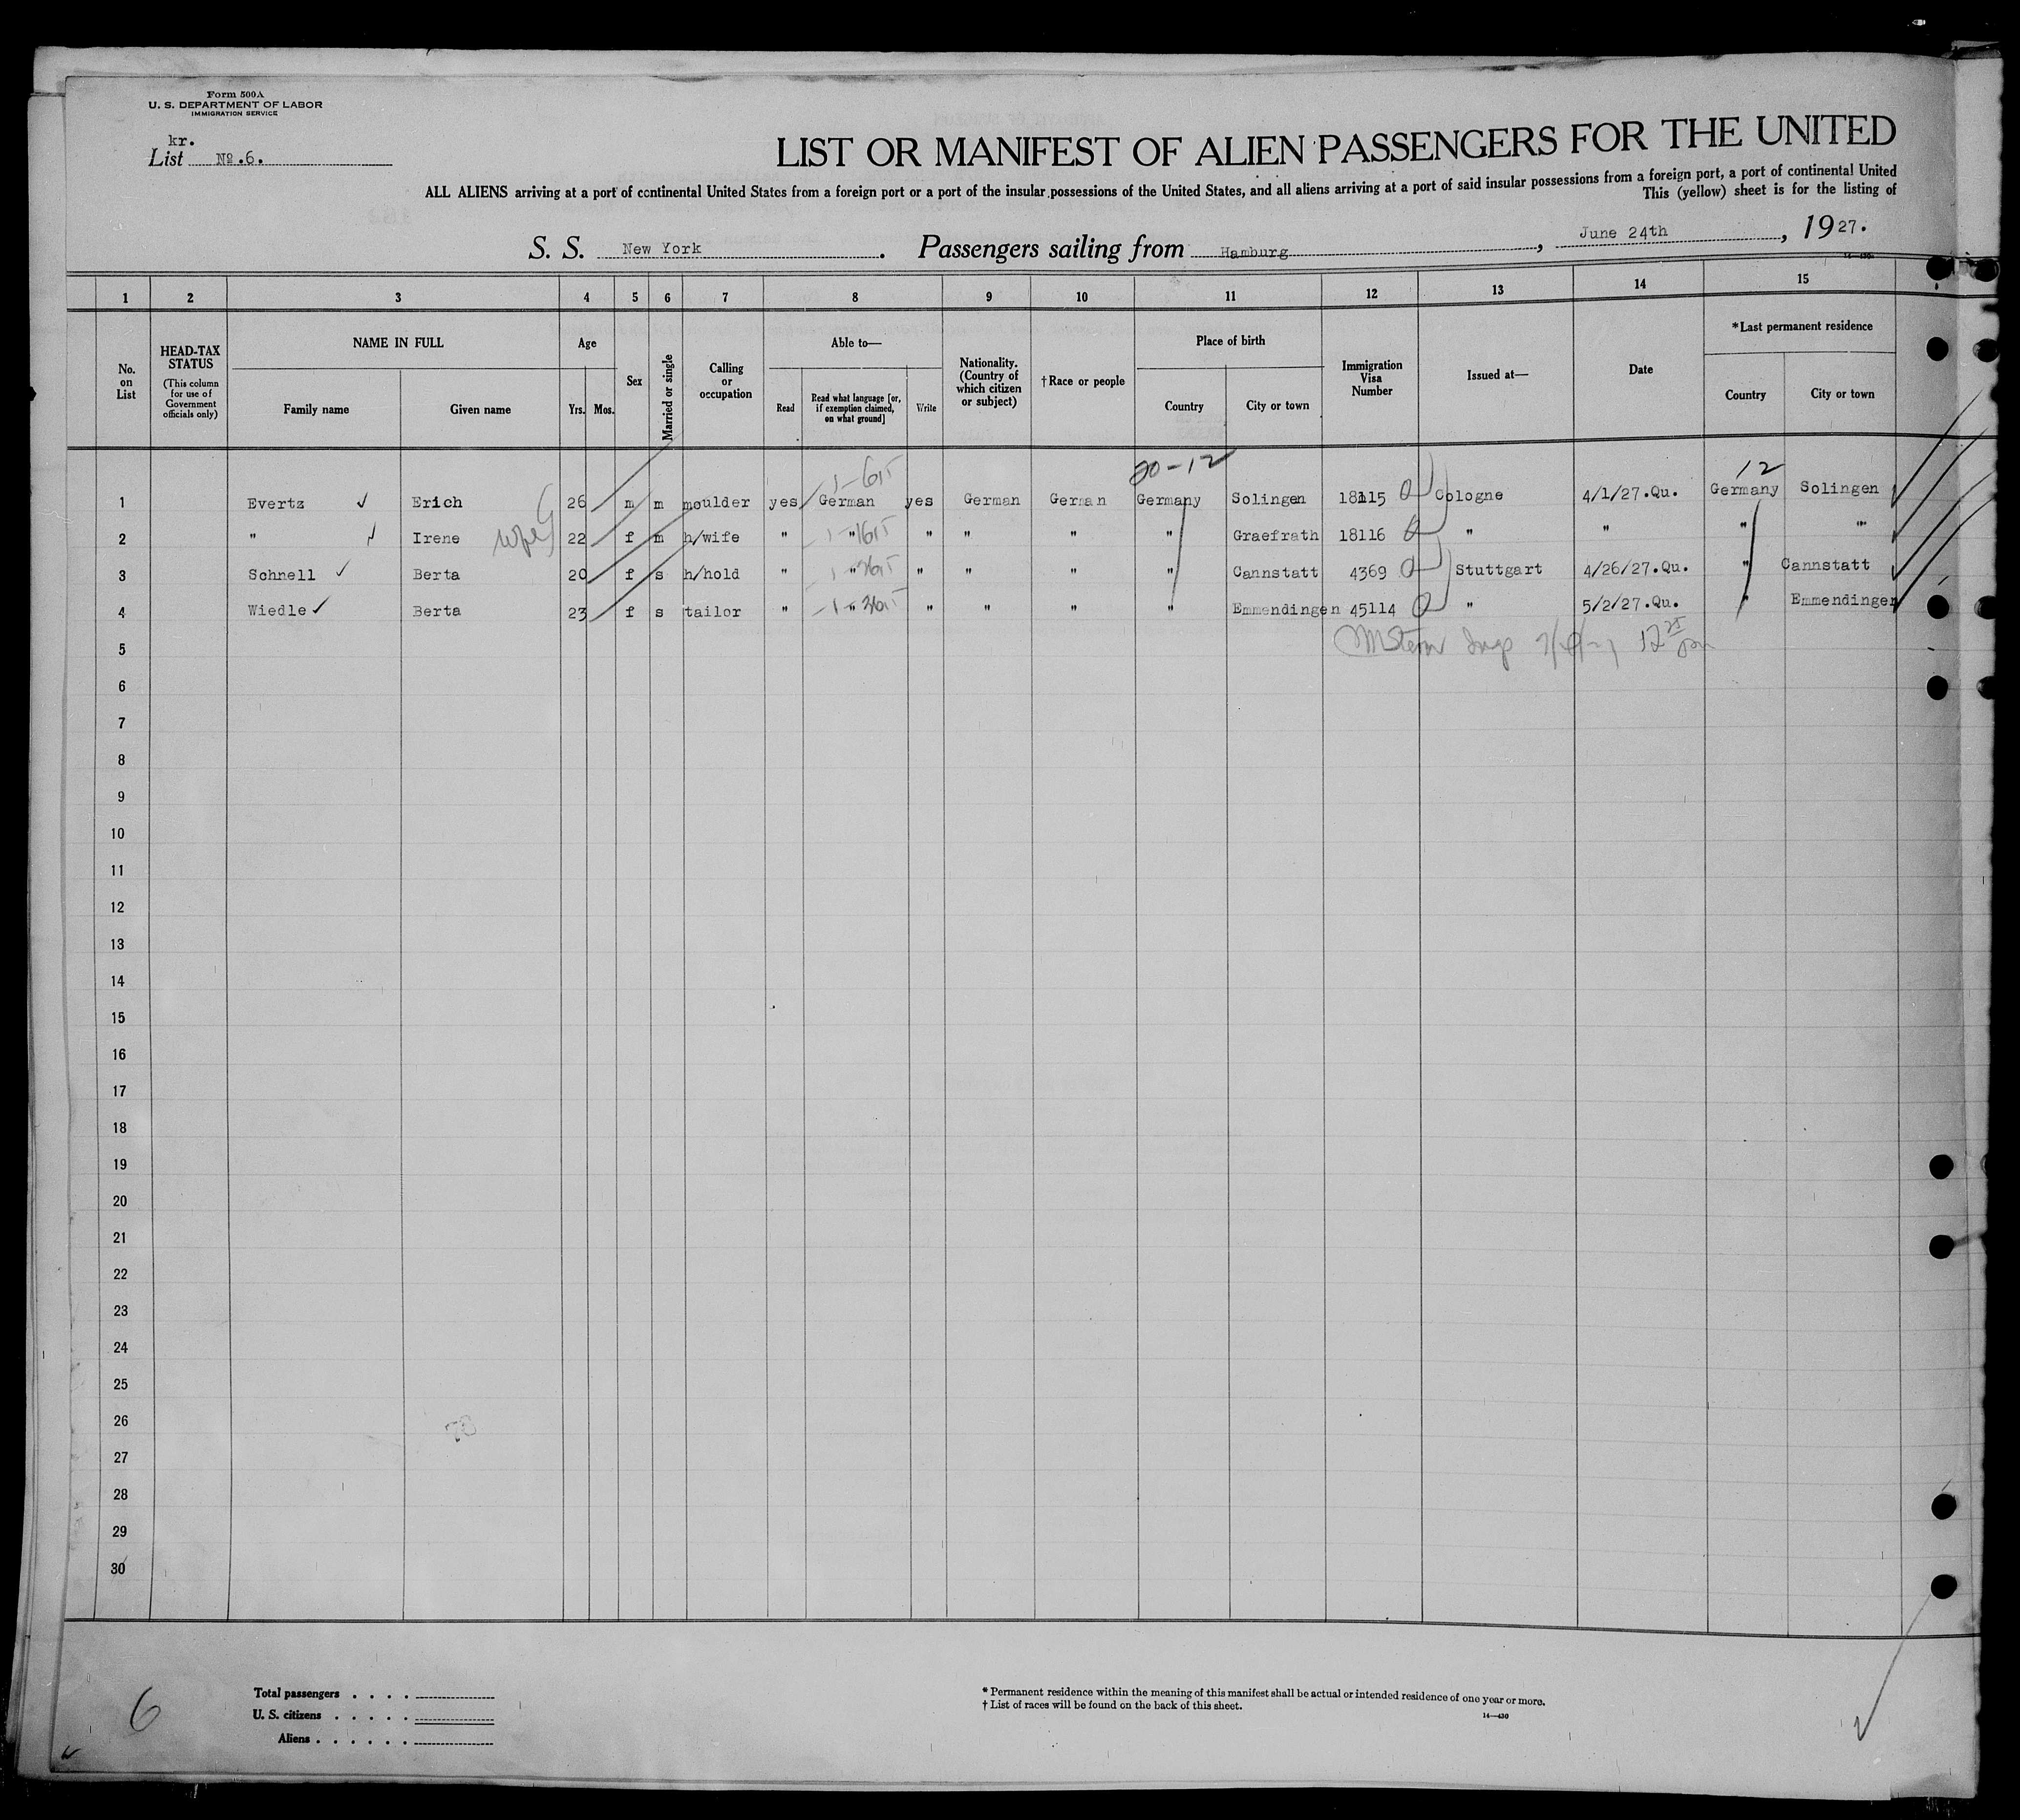 Form 500A
U. S. DEPARTMENT OF LABOR
IMMIGRATION SERVICE
kr.
List № .6.
LIST OR MANIFEST OF ALIEN PASSENGERS FOR THE UNITED
ALL ALIENS arriving at a port of continental United States from a foreign port or a port of the insular possessions of the United States, and all aliens arriving at a port of said insular possessions from a foreign port, a port of continental United
This (yellow) sheet is for the listing of
S. S. New York. Passengers sailing from Hamburg, June 24th, 1927.
1 2 3 4 5 6 7 8 9 10 11 12 13 14 15
No. on List
HEAD-TAX STATUS
(This column for use of Government officials only)
NAME IN FULL
Family name Given name
Age
Yrs. Mos.
Sex
Married or single
Calling or occupation
Able to—
Read
Read what language [or, if exemption claimed, on what ground]
Write
Nationality. (Country of which citizen or subject)
†Race or people
Place of birth
Country City or town
Immigration Visa Number
Issued at—
Date
*Last permanent residence
Country City or town
20-12 12
1 Evertz Erich 26 m m moulder yes German yes German German Germany Solingen 18115 Cologne 4/1/27.Qu. Germany Solingen
2 " Irene wife 22 f m h/wife " " " " " " Graefrath 18116 " " " "
3 Schnell Berta 20 f s h/hold " " " " " " Cannstatt 4369 Stuttgart 4/26/27.Qu. " Cannstatt
4 Wiedle Berta 23 f s tailor " " " " " " Emmendingen 45114 " 5/2/27.Qu. " Emmendingen
5
6
7
8
9
10
11
12
13
14
15
16
17
18
19
20
21
22
23
24
25
26
27
28
29
30
6
Total passengers . . . .
U. S. citizens . . . . .
Aliens . . . . . .
* Permanent residence within the meaning of this manifest shall be actual or intended residence of one year or more.
† List of races will be found on the back of this sheet.
14—430